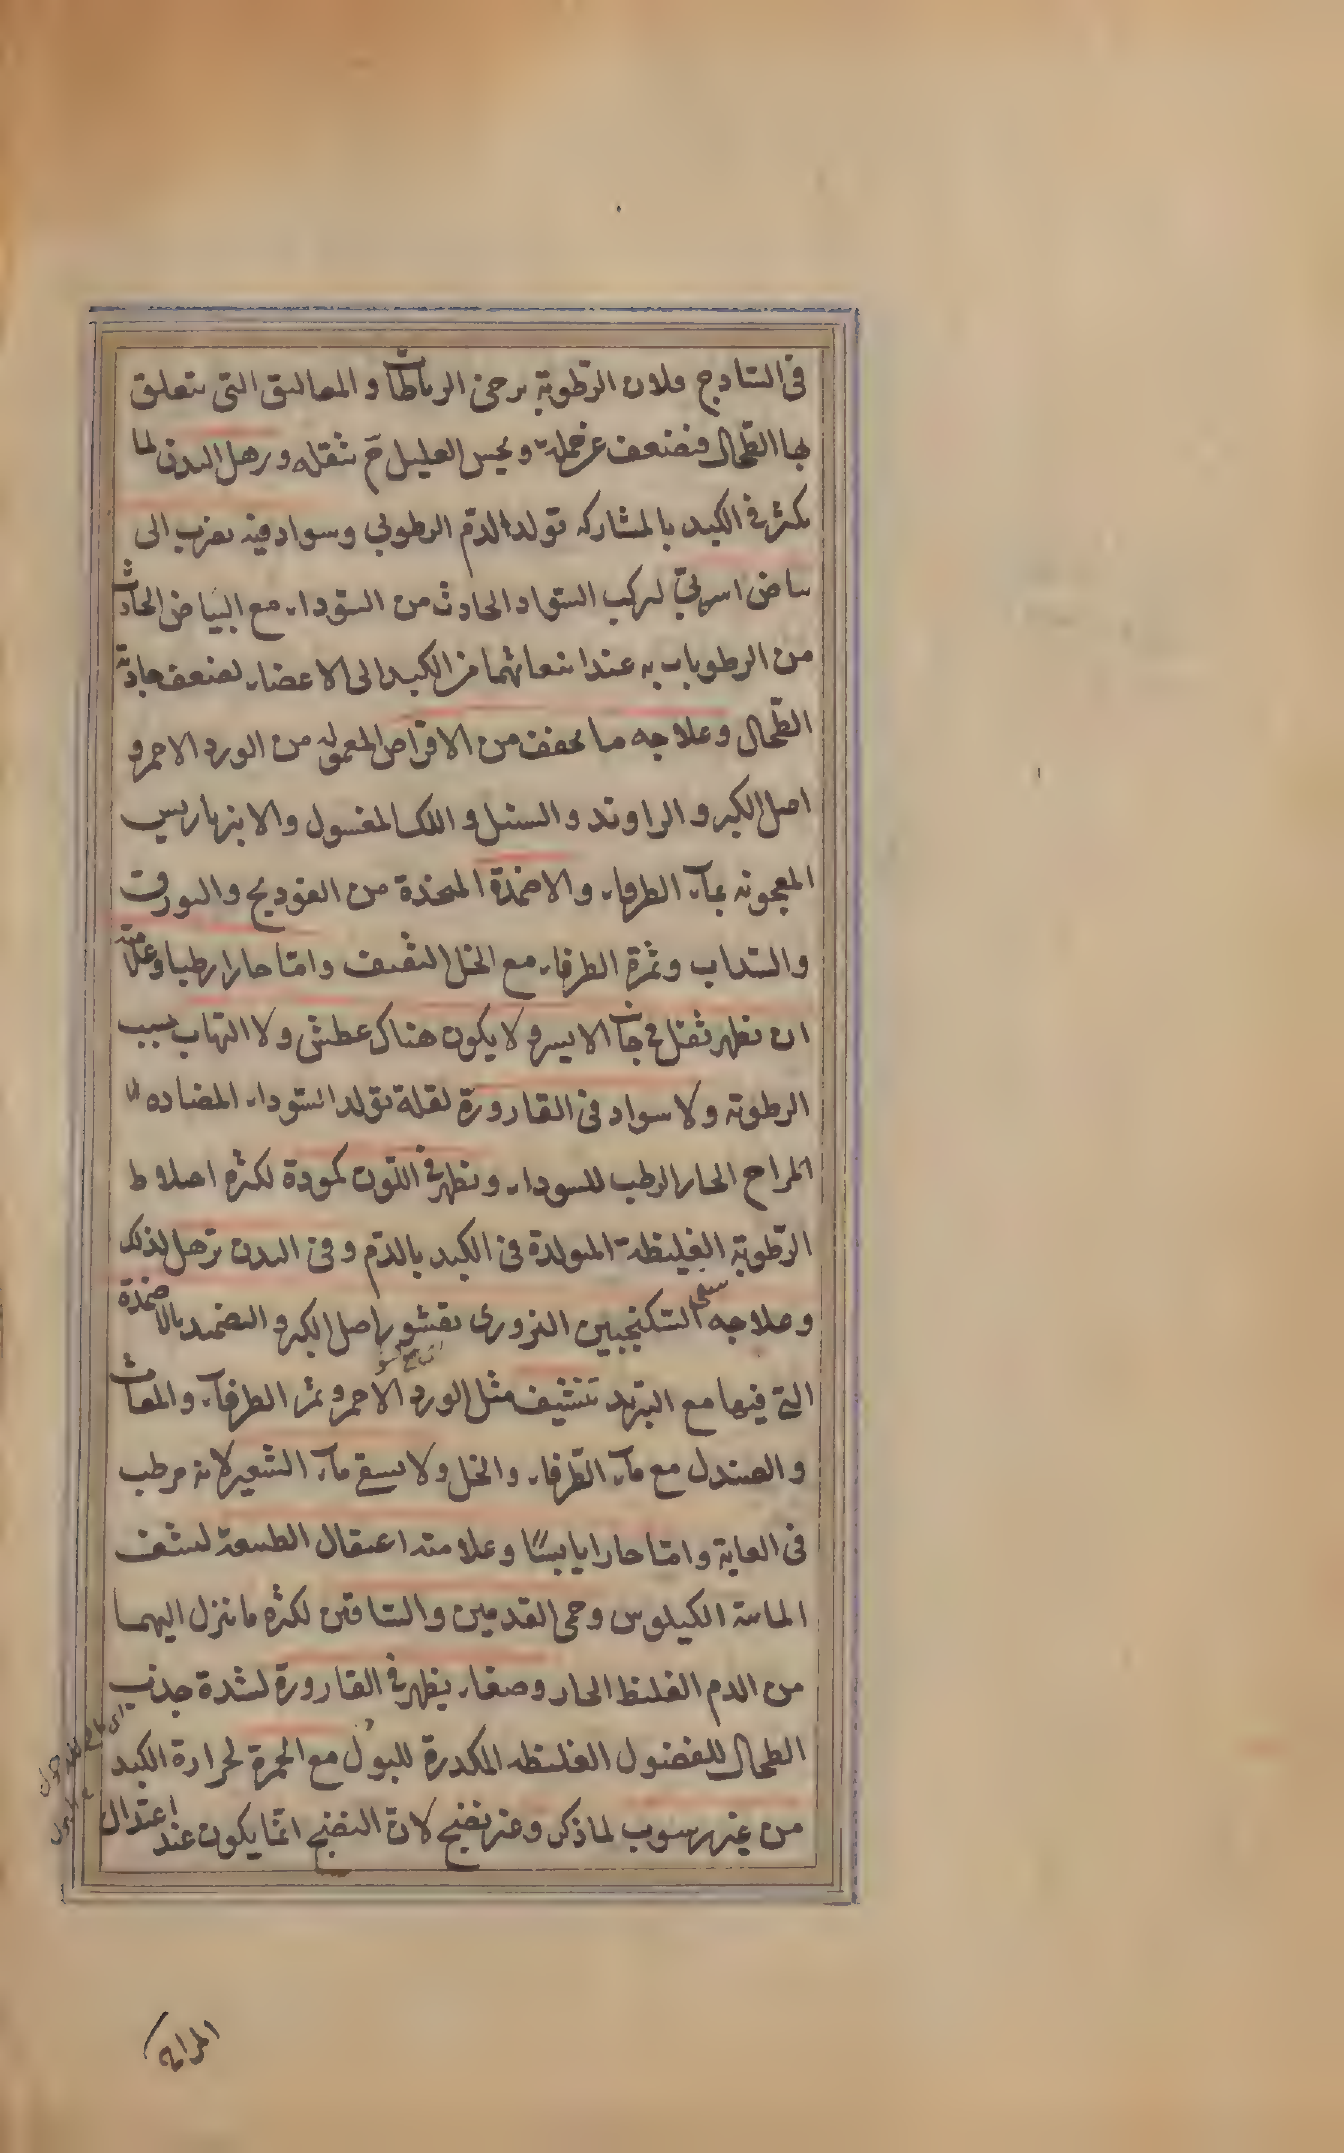 فى الساذج فلان الرطوبة يرخى الرباطات و المعاليق التى يتعلق
بها الطحال فيضعف عن حمله و يحس العليل ثم بثقله و رهل البدن لما
يكثر فى الكبد بالمشاركه تولد الدم الرطوبى وسواد فيه يضرب الى
بياض اسربى لتركب السواد الحادث من السوداء مع البياض الحادث
من الرطوبات به عند انبعاثهما من الكبد الى الاعضاء لضعف جاذبة
الطحال وعلاجه ما يجفف من الاقراص المعمولة من الورد الاحمر و
اصل الكبر و الراوند و السنبل و اللك المغسول و الانبرباريس
المعجونه بماء الطرفاء والاضمدة المتخذة من الفودنج والبورق
والسداب وثمرة الطرفاء مع الخل الثقيف واما حارا رطبا وعلامته
ان يظهر ثقل فى جانب الايسر و لا يكون هناك عطش و لا التهاب بسبب
الرطوبة ولا سواد فى القارورة لقلة تولد السوداء المضاده
المزاج الحار الرطب للسوداء ويظهر فى اللون كمودة لكثرة اختلاط
الرطوبة الغليظة المتولدة فى الكبد بالدم وفى البدن ترهل لذلك
وعلاجه سقى السكنجبين البزورى بقشور اصل الكبر و التضميد بالاضمدة
التى فيها مع التبريد تنشيف مثل الورد الاحمر و ثمر الطرفاء والمغاث
والصندل مع ماء الطرفاء والخل ولا يسقى ماء الشعير لانه مرطب
فى الغاية واما حارا يابسا وعلامته اعتقال الطبيعة لنشف
المائية الكيلوس وحمى القدمين والساقين لكثرة ما ينزل اليهما
من الدم الغليظ الحار وصفاء يظهر فى القارورة لشدة جذب
الطحال للفضول الغليظه المكدرة للبول مع الحمرة لحرارة الكبد
من غير رسوب لما ذكر وغير نضج لان النضج انما يكون عند اعتدال